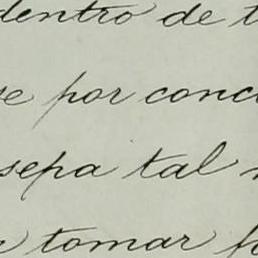 dentro de t
se por conc
sepa tal
tomar fo